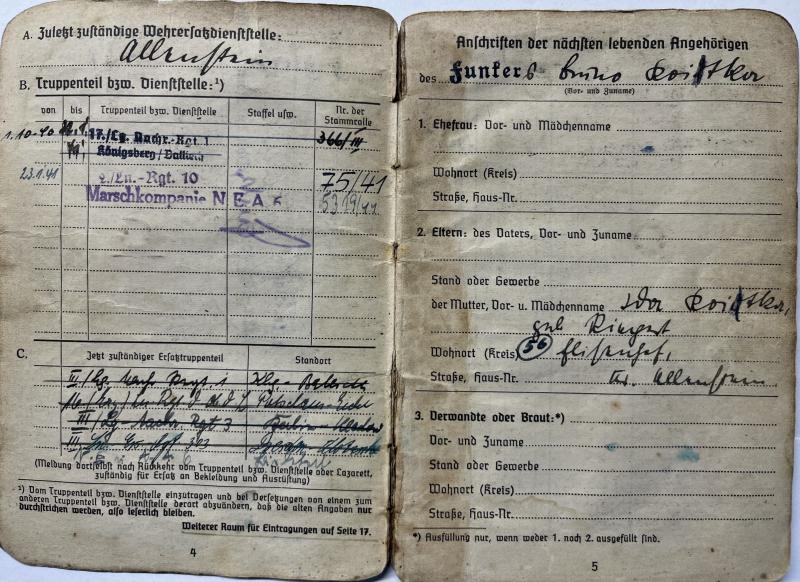 A. Zuletzt zuständige Wehrersatzdienststelle:
Allenstein
B. Truppenteil bzw. Dienststelle:¹)
von bis Truppenteil bzw. Dienststelle Staffel usw. Nr. der Stammrolle
1.10.40 17./Lg. Nachr.-Rgt. 1 366/III
Königsberg/
23.1.41 ./Ln.-Rgt. 10 75/41
Marschkompanie N E A
C. Jetzt zuständiger Ersatztruppenteil Standort
III/Lg. Nachr. Regt. 1
III/Lg. Nachr. Rgt 3 Berlin-
(Meldung dortselbst nach Rückkehr vom Truppenteil bzw. Dienststelle oder Lazarett,
zuständig für Ersatz an Bekleidung und Ausrüstung)
¹) Vom Truppenteil bzw. Dienststelle einzutragen und bei Versetzungen von einem zum
anderen Truppenteil bzw. Dienststelle derart abzuändern, daß die alten Angaben nur
durchstrichen werden, also leserlich bleiben.
Weiterer Raum für Eintragungen auf Seite 17.
4
Anschriften der nächsten lebenden Angehörigen
des Funkers Bruno
(Vor- und Zuname)
1. Ehefrau: Vor- und Mädchenname
Wohnort (Kreis)
Straße, Haus-Nr.
2. Eltern: des Vaters, Vor- und Zuname
Stand oder Gewerbe
der Mutter, Vor- u. Mädchenname Ida
geb
Wohnort (Kreis) 56
Straße, Haus-Nr. Kr. Allenstein
3. Verwandte oder Braut:*)
Vor- und Zuname
Stand oder Gewerbe
Wohnort (Kreis)
Straße, Haus-Nr.
*) Ausfüllung nur, wenn weder 1. noch 2. ausgefüllt sind.
5